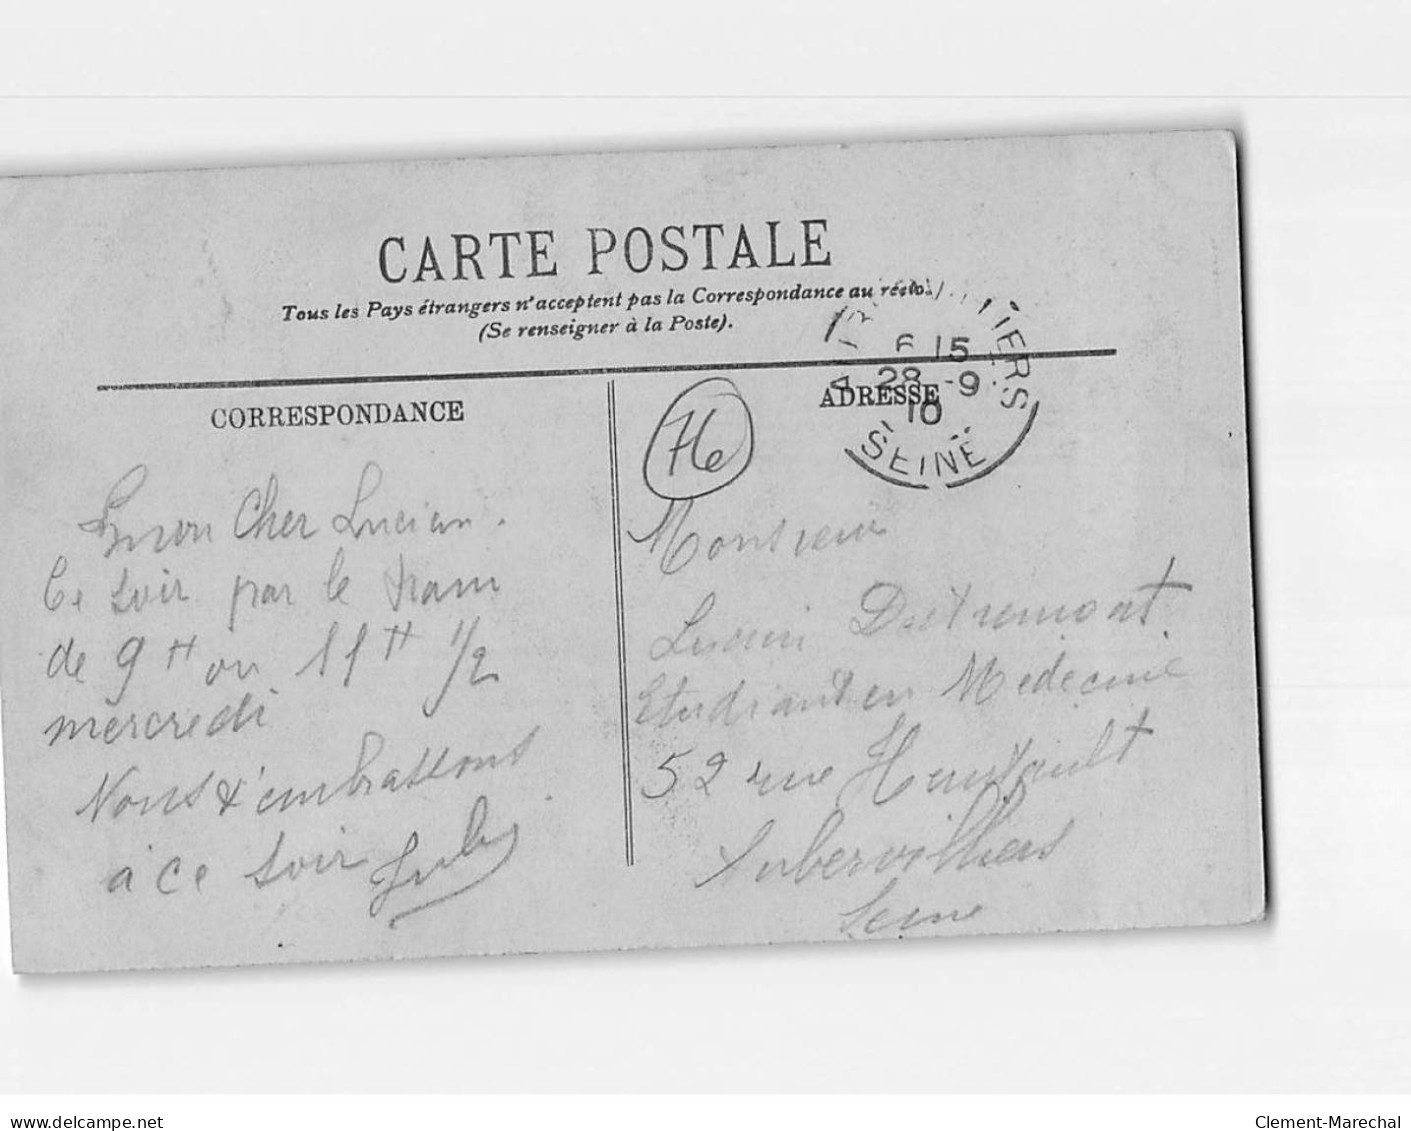 CARTE POSTALE
Tous les Pays étrangers n'acceptent pas la Correspondance au recto.
(Se renseigner à la Poste).
CORRESPONDANCE
ADRESSE
6 15
28 -9
10
SEINE
76
mon Cher Lucien.
Ce soir par le tram
de 9 H ou 11 H 1/2
mercredi
Nous t'embrassons
à ce soir
Monsieur
Lucien Dutremont
Etudiant en Medecine
52 rue
Aubervilliers
Seine
delcampe.net
Clement-Marechal